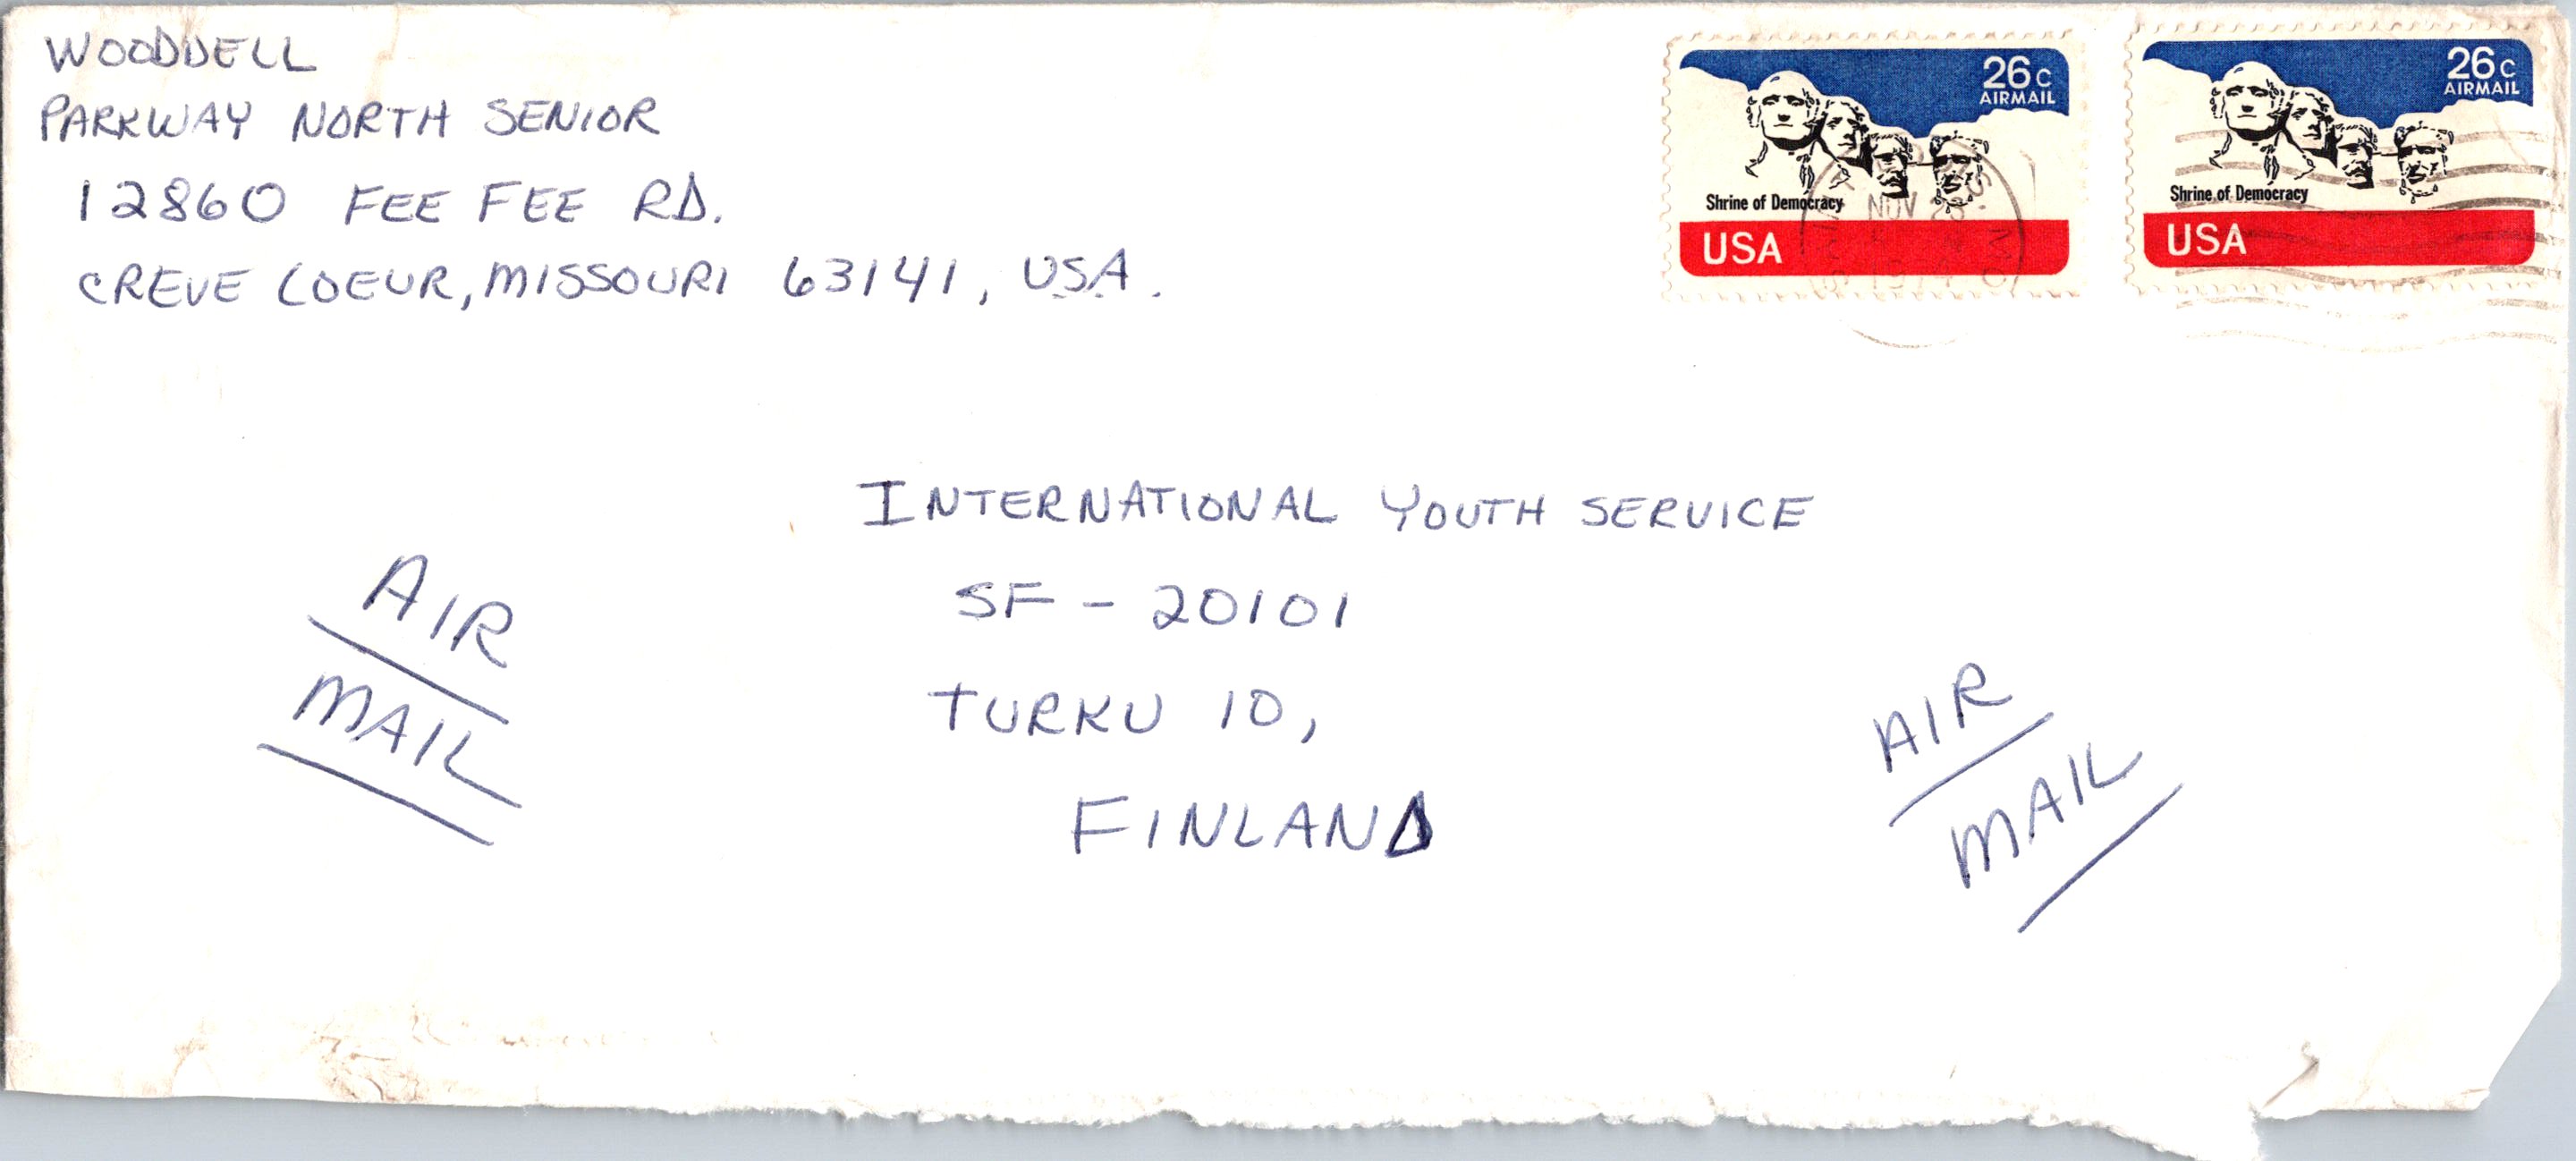 WOODDELL
PARKWAY NORTH SENIOR
12860 FEE FEE RD.
CREVE COEUR, MISSOURI 63141, USA.
26c
AIRMAIL
Shrine of Democracy
USA
26c
AIRMAIL
Shrine of Democracy
USA
NOV
MO
INTERNATIONAL YOUTH SERVICE
SF - 20101
TURKU 10,
FINLAND
AIR
MAIL
AIR
MAIL